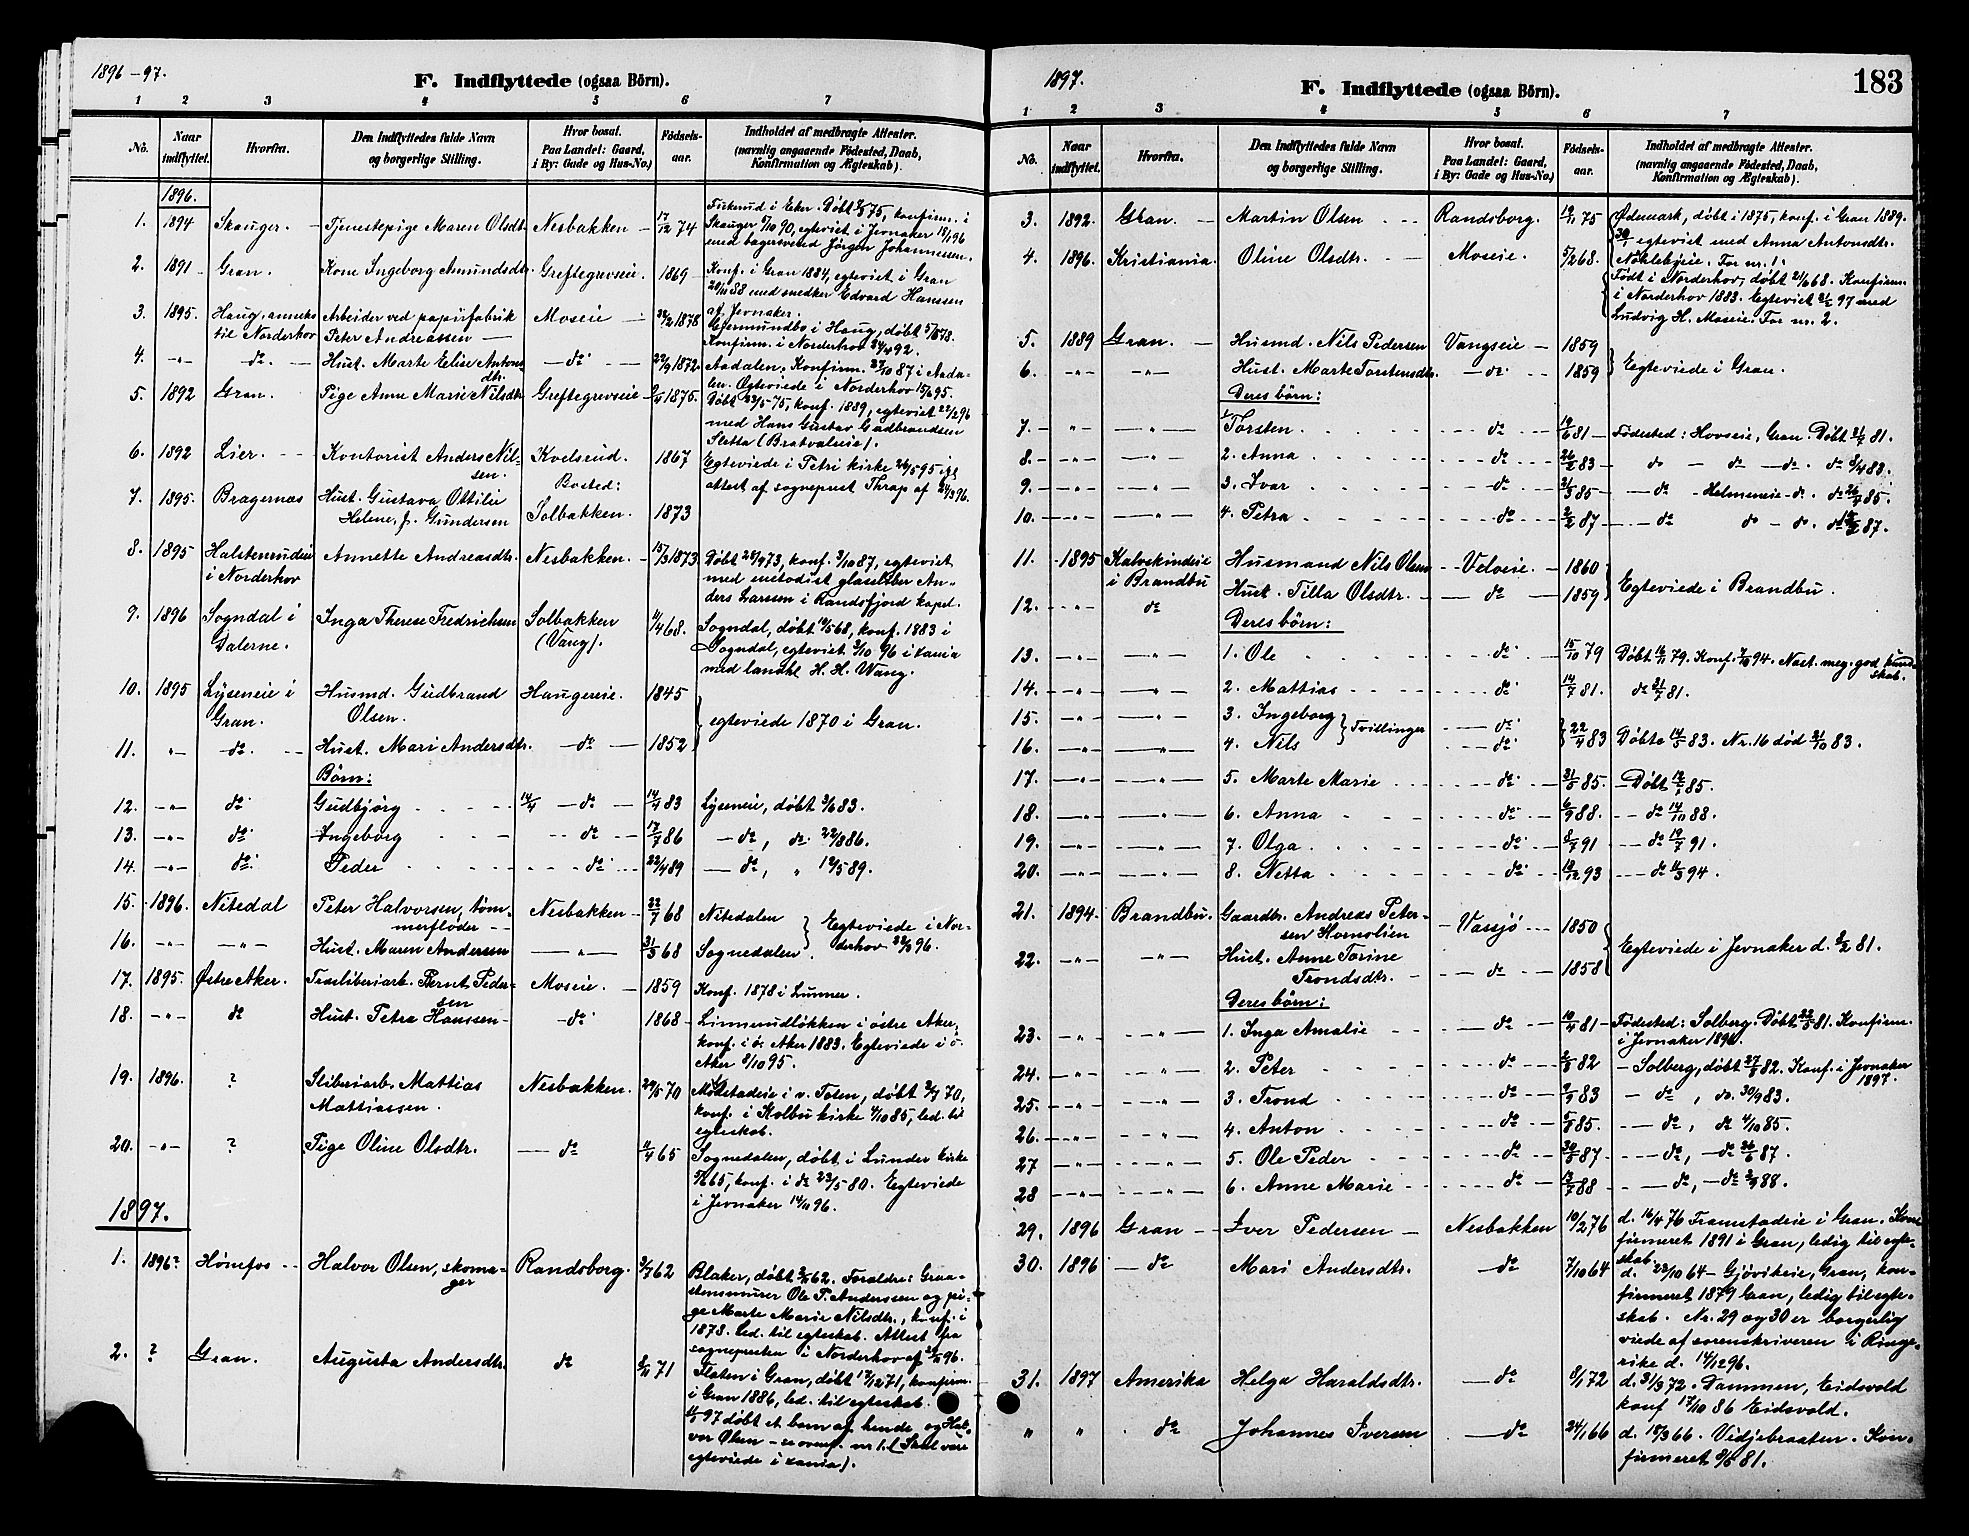 1896-97.
F. Indflyttede (ogsaa Börn).
1 2 3 4 5 6 7
No. Naar indflyttet. Hvorfra. Den Indflyttedes fulde Navn og borgerlige Stilling. Hvor bosat. Paa Landet: Gaard, i By: Gade og Hus-No.) Födselsaar. Indholdet af medbragte Attester. (navnlig angaaende Födested, Daab, Konfirmation og Ægteskab).
1896.
1. 1894 Skauger. Tjenestepige Maren Olsdt. Nesbakken 17/12 74 i Eker. Döbt 75, konfirm. i
Skauger 5/10 90, egteviet i Jevnaker 18/1 96
med bagersvend Jörgen Johannessen.
2. 1891 Gran. Kone Ingeborg Amundsdtr. Greftegreveie. 1869 Konf. i Gran 1884, egteviet i Gran
20/11 88 med snedker Edvard Hanssen
af Jevnaker.
3. 1895. Haug, anneks Arbeider ved papirfabrik Moseie 22/2 1878 Gjermundbo i Haug, döbt 5/5 78.
til Norderhov Peter Andreassen Konfirm. i Norderhov 24/4 92.
4. -"- do. Hust. Marte Elise Antons- do 22/9 1872. Aadalen. Konfirm. 23/10 87 i Aada-
dtr. len. Egteviede i Norderhov 15/2 95.
5. 1892 Gran. Pige Anne Marie Nilsdtr Greftegreveie 2/4 1875. Döbt 23/5 75, konf. 1889, egteviet 22/2 96
med Hans Gustav Gudbrandsen
Sletta (Bratvaleie).
6. 1892 Lier. Kontorist Anders Nil- Kvelsrud. 1867 Egteviede i Petri kirke 26/5 95 ifg
sen. Bosted: attest af sogneprest Thrap af 24/3 96.
7. 1895. Bragernæs Hust. Gustava Ottilie Solbakken. 1873
Helene, f. Gundersen
8. 1895 Halsteinrudeie Annette Andreasdtr. Nesbakken. 15/3 1873 Döbt 28/4 73, konf. 2/10 87, egteviet
i Norderhov med metodist glassliber An-
ders Larssen i Randsfjord kapel.
9. 1896 Sogndal i Inga Therese Fredrichsen Solbakken 11/4 68. Sogndal, döbt 10/5 68, konf. 1883 i
Dalerne. (Vang). Sogndal, egteviet 3/10 96 i xania
med landhl. H. H. Wang.
10. 1895 Lyseneie i Husmd. Gudbrand Haugereie. 1845
Gran. Olsen. egteviede 1870 i Gran.
11. " do. Hust. Mari Andersdtr. do 1852
Börn:
12. -"- do Gudbjörg 14/4 do 14/4 83 Lyseneie, döbt 3/6 83.
13. -"- do Ingeborg do 17/7 86 do, do 22/8 86.
14. -"- do. Peder do 22/4 89 do, " 12/5 89.
15. 1896. Nitedal Peter Halvorsen, töm- Nesbakken 22/7 68 Nitedalen Egteviede i Nor-
merflöder derhov 22/3 96.
16. -"- -"- Hust. Maren Andersen -"- 31/3 68 Sognedalen
17. 1895. Östre Aker. Træsliberiarb. Bernt Peder- Moseie. 1859 Konf. 1878 i Lunner.
sen
18. -"- do Hust. Petra Hanssen do 1868 Linnerudlökken i östre Aker,
konf. i ö. Aker 1883. Egteviede i ö.
Aker 8/10 95.
19. 1896. ? Sliberiarb. Mattias Nesbakken. 29/5 70 i v. Toten, döbt 3/7 70,
Mattiassen. konf. i Kolbu kirke 4/10 85, led. til
egteskab.
20. -"- ? Pige Oline Olsdtr. do 11/4 65 Sognedalen, döbt i Lunder kirke
5/6 65, konf. i do 23/5 80. Egteviede
i Jevnaker 14/11 96.
1897.
1. 1896? Hönefos Halvor Olsen, skoma- Randsborg. 3/4 62 Blaker, döbt 62. Foræeldre: Graa-
ger stensmurer Ole P. Anderssen og pi-
ge Marte Marie Nilsdtr., konf. i
1878. Led. til egteskab. Attest fra
sognepresten i Norderhov af 96.
2. ? Gran. Augusta Andersdtr. do 71 Flaten i Gran, döbt 12/12 71, konfirm.
i Gran 1886, led. til egteskab.
97 döbt et barn af hende og Hal-
vor Olsen – se ovenf. nr 1. (Skal være
egteviede i xania).
1897.
F. Indflyttede (ogsaa Börn).
183
1 2 3 4 5 6 7
No. Naar indflyttet. Hvorfra. Den Indflyttedes fulde Navn og borgerlige Stilling. Hvor bosat. Paa Landet: Gaard, i By: Gade og Hus-No.) Födselsaar. Indholdet af medbragte Attester. (navnlig angaaende Födested, Daab, Konfirmation og Ægteskab).
3. 1892. Gran. Martin Olsen Randsborg. 19/11 75 Ödemark, döbt i 1875, konf. i Gran 1889.
30/1 egteviet med Anna Antonsdtr.
Nöklebyeie. For nr. 1.
4. 1896. Kristiania. Oline Olsdtr. Moseie 5/2 68. Födt i Norderhov, döbt 21/6 68. Konfirm.
i Norderhov 1883. Egteviet 2/2 97 med
Ludvig H. Moseie. For nr. 2.
5. 1889 Gran. Husmd. Nils Pedersen Vangseie 1859
6. " -"- Hust. Marte Torstensdtr. do 1859 Egteviede i Gran.
Deres börn:
7. " -"- 1. Torsten do 19/6 81 Födested: Hovseie, Gran. Döbt 31/7 81.
8. " -"- 2. Anna do 26/2 83 do do do. do 8/4 83.
9. " -"- 3. Ivar do 21/3 85 do Helmeneie do. do 26/4 85.
10. " -"- 4. Petra do 2/2 87 do do do. do 87.
11. 1895 Kalvskindeie Husmand Nils Olsen Velveie. 1860
i Brandbu Egteviede i Brandbu.
12. " do Hust. Tilla Olsdtr. do 1859
Deres börn:
13. -"- -"- 1. Ole do 15/10 79 Döbt 16/11 79. Konf. 7/10 94. Nost. meg. god kund-
skab.
14. -"- -"- 2. Mattias do 14/7 81. do 31/7 81.
15. -"- -"- 3. Ingeborg Tvillinger do 22/4 83 Döbte 14/5 83. Nr. 16 död 31/10 83.
16. -"- -"- 4. Nils do
17. -"- -"- 5. Marte Marie do 31/5 85. Döbt 12/7 85.
18. -"- -"- 6. Anna do 6/9 88. do 14/10 88.
19. -"- -"- 7. Olga do 8/7 91 do 19/7 91.
20. -"- -"- 8. Netta do 18/12 93 do 11/3 94.
21. 1894. Brandbu. Gaardbr. Andreas Peter- Vassjö 1850
sen Hornslien
22. -"- -"- Hust. Anne Torine do 1858 Egteviede i Jevnaker d. 2/2 81.
Trondsdtr.
Deres börn:
23. -"- -"- 1. Inga Amalie do 10/4 81 Födested: Solberg. Döbt 22/5 81. Konfirm.
i Jevnaker 1896.
24. -"- -"- 2. Peter do 82 Solberg, döbt 27/8 82. Konf. i Jevnaker
1897.
25. -"- -"- 3. Trond do 2/9 83 do, do. 30/9 83.
26. -"- -"- 4. Anton do 5/8 85. do, do 4/10 85.
27 -"- -"- 5. Ole Peder do 30/5 87 do, do 26/6 87.
28 -"- -"- 6. Anne Marie do 13/7 88 do, do 2/9 88.
29. 1896 Gran Iver Pedersen Nesbakken 10/2 76 d. 16/4 76 Framstadeie i Gran. Kon-
firmeret 1891 i Gran, ledig til egte-
skab.
30. 1896 do Mari Andersdtr. do 7/10 64 d. 23/10 64 – Gjövikeie, Gran, kon-
firmeret 1879 Gran, ledig til egte-
skab. Nr. 29 og 30 er borgerlig
viede af sorenskriveren i Ringe-
rike d. 14/12 96.
31. 1897 Amerika Helga Haraldsdtr. do 8/1 72 d. 31/3 72. Dammen, Eidsvold
konf 17/10 86 Eidsvold.
" " do Johannes Iversen do 24/1 66 d. 18/3 66. Vidjebraaten. Kon-
firmeret 81.